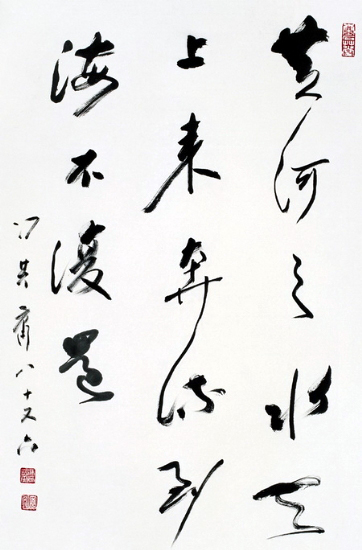 黄河之水天
上来奔流到
海不復還
冯其庸八十又六